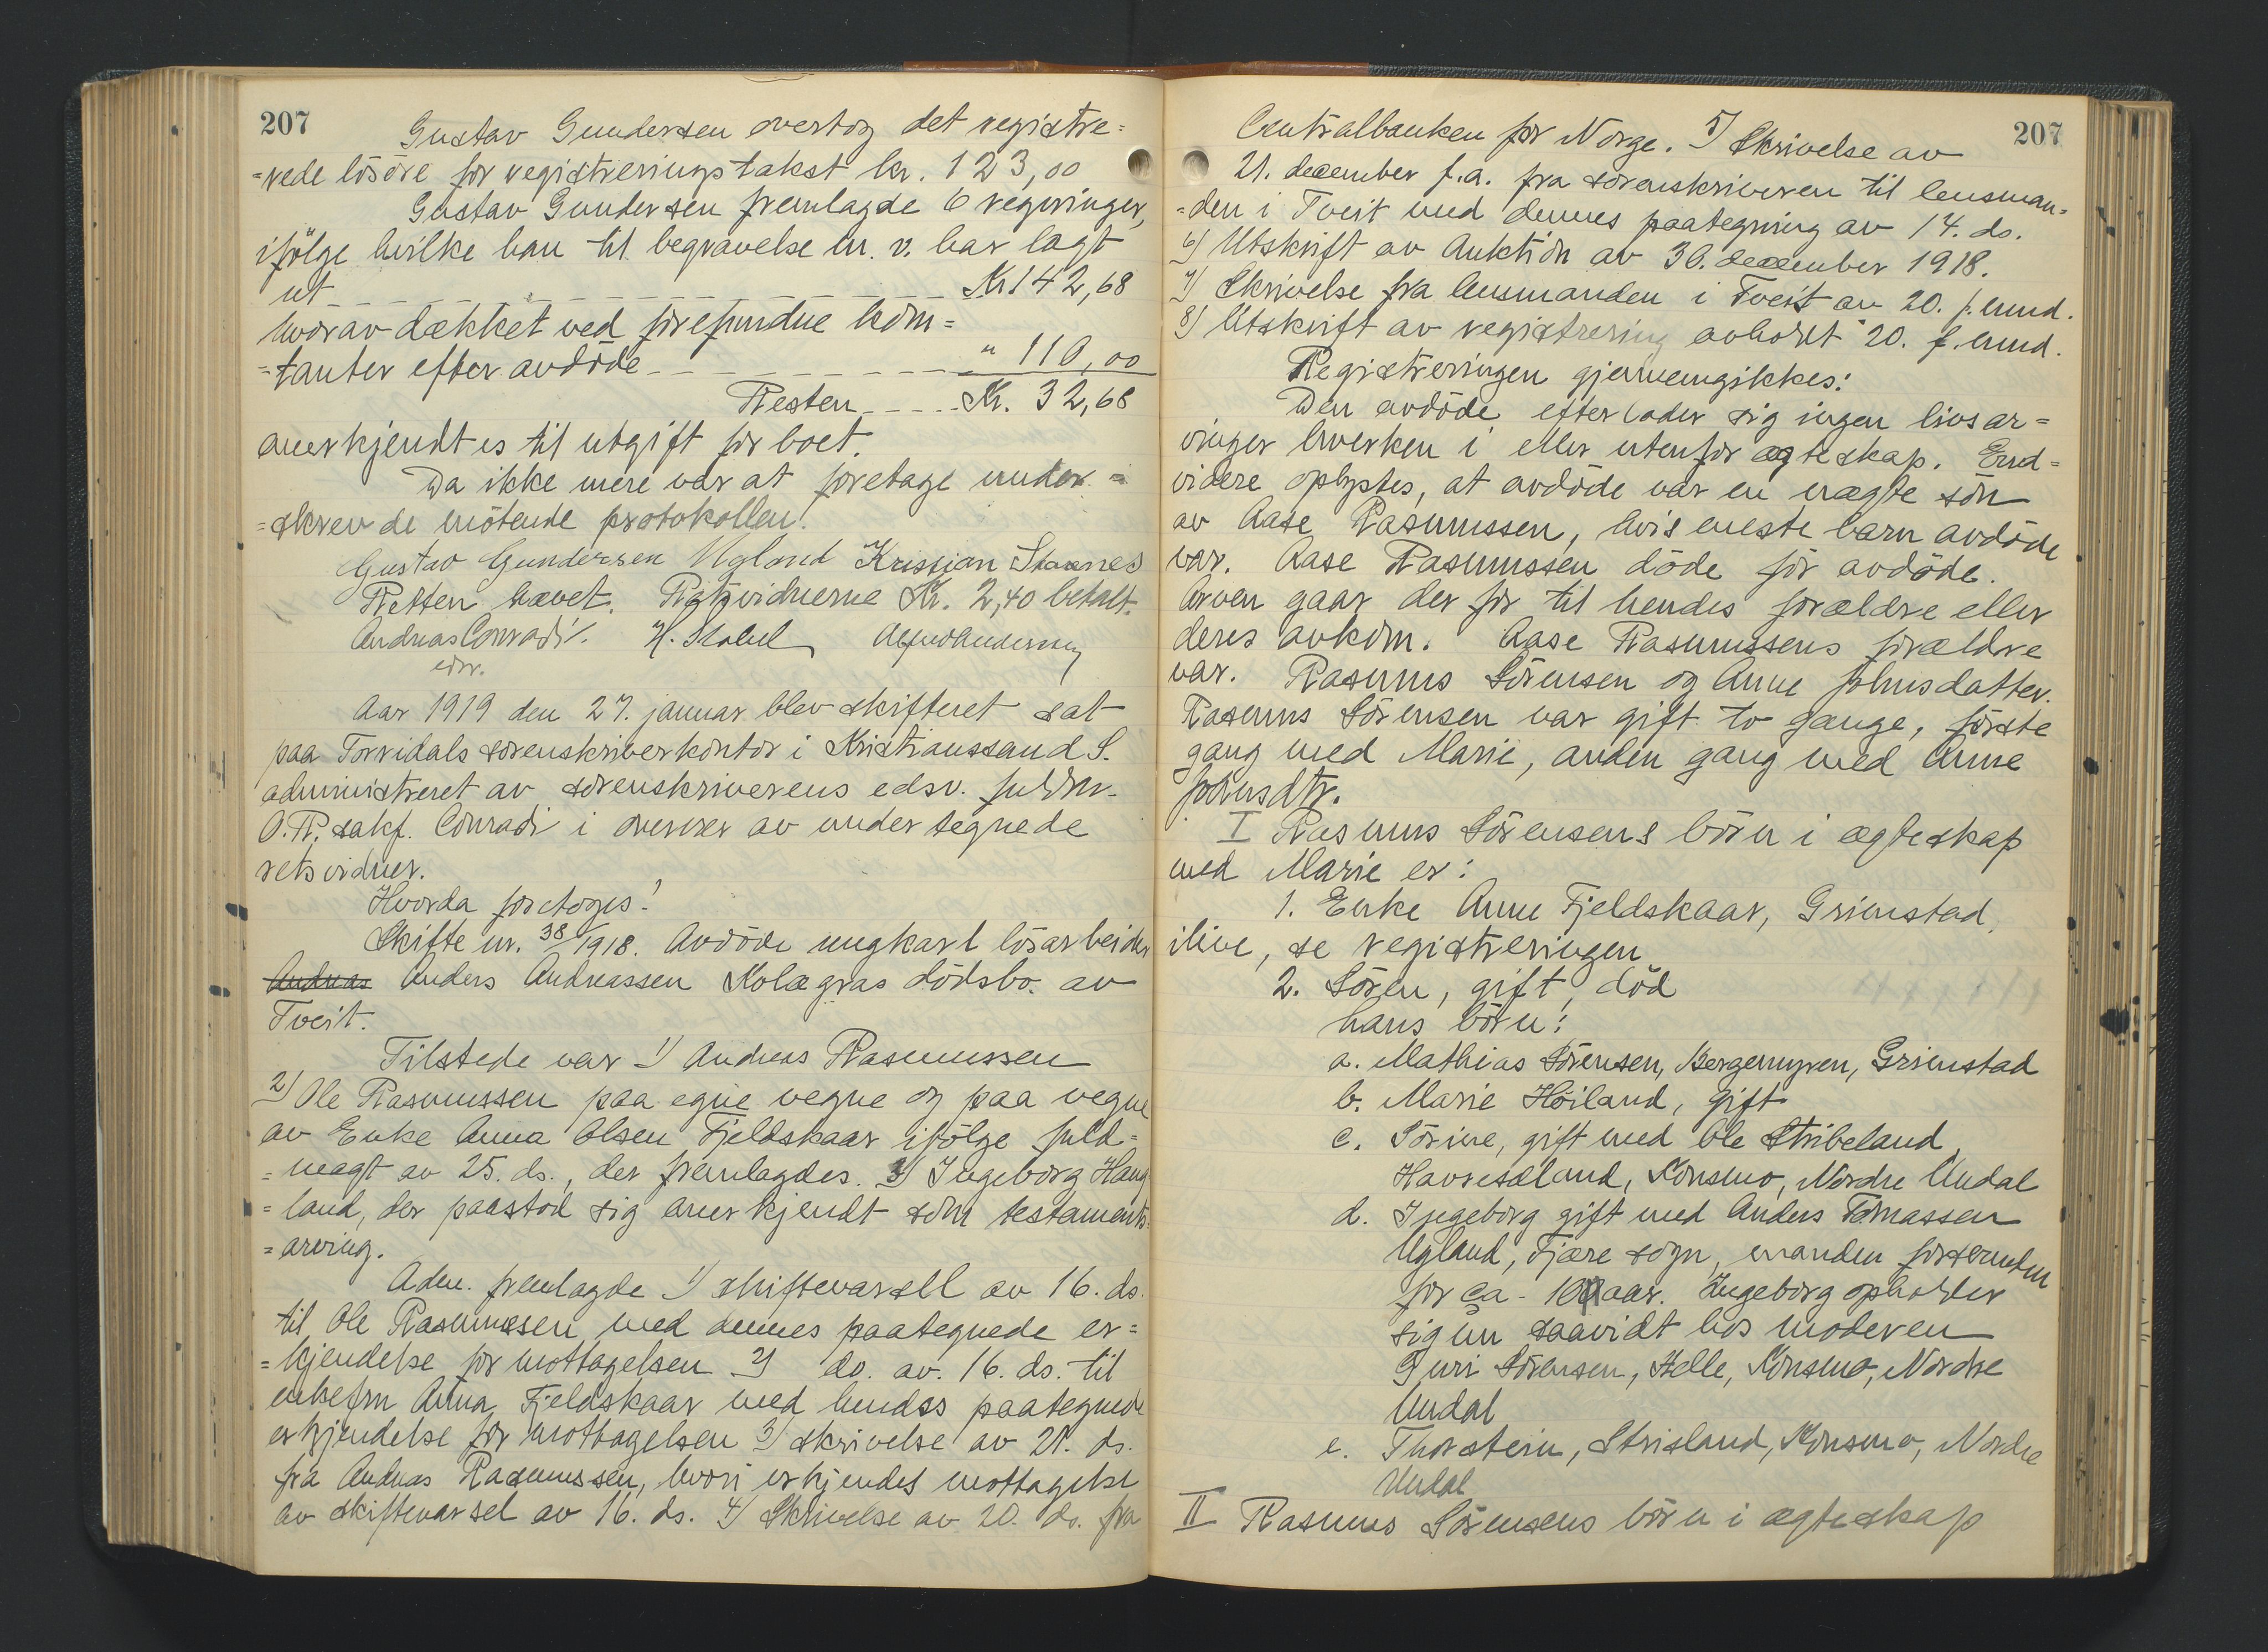 207
Gustav Gundersen overtog det registre=
=rede lösöre for registreringstakst kr. 123,00
Gustav Gundersen fremlagde 6 regninger,
ifölge hvilke han til begravelse m. v. har lagt
ut Kr 142,68
hvorav dækket ved forefundne kon=
=tanter efter avdöde " 110,00
Resten Kr. 32,68
anerkjendtes til utgift for boet.
Da ikke mere var at foretage under=
=skrev de mötende protokollen.
Gustav Gundersen Ugland Kristian Stavnes
Retten hævet. Retsvidnerne Kr. 2,40 betalt.
Andreas Conradi. H. Stabel Alfred Andersen
edsv.
Aar 1919 den 27. januar blev skifteret sat
paa Torridals sorenskriverkontor i Kristianssand S.
administreret av sorenskriverens edsv. fuldm.
O.R. sakf. Conradi i overvær av undertegnede
retsvidner.
Hvorda foretoges:
Skifte nr. 38/1918. Avdöde ungkarl lösarbeider
Andreas Anders Andreassen Kolægras dödsbo. av
Tveit.
Tilstede var 1) Andreas Rasmussen
2) Ole Rasmussen paa egne vegne og paa vegne
av Enke Anna Olsen Fjeldskaar ifölge fuld=
=magt av 25. ds., der fremlagdes. 3) Ingeborg Haug
=land, der paastod sig anerkjendt som testaments=
=arving.
Adm. fremlagde 1) skiftevarsel av 16. ds.
til Ole Rasmussen med dennes paategnede er=
=kjendelse for mottagelsen 2) do. av. 16. ds. til
enkefru Anna Fjeldskaar med hendes paategnede
erkjendelse for mottagelsen 3) skrivelse av 21. ds.
fra Andreas Rasmussen, hvori erkjendes mottagelse
av skiftevarsel av 16. ds. 4) Skrivelse av 20. ds. fra
207
Centralbanken for Norge. 5) Skrivelse av
21. december f.a. fra sorenskriveren til lensman=
=den i Tveit med dennes paategning av 14. ds.
6) Utskrift av Auktion av 30. december 1918.
7) Skrivelse fra lensmanden i Tveit av 20. f. mnd.
8) Utskrift av registrering avholdt 20. f. mnd.
Registreringen gjennemgikkes:
Den avdöde efterlader sig ingen livsar=
vinger hverken i eller utenfor ægteskap. End=
videre oplystes, at avdöde var en uægte sön
av Aase Rasmussen, hvis eneste barn avdöde
var. Aase Rasmussen döde för avdöde.
Arven gaar derfor til hendes forældre eller
deres avkom. Aase Rasmussens forældre
var. Rasmus Sörensen og Anne Johnsdatter.
Rasmus Sörensen var gift to gange, förste
gang med Marie, anden gang med Anne
Johnsdtr.
I Rasmus Sörensens börn i ægteskap
med Marie er:
1. Enke Anne Fjeldskaar, Grimstad,
ilive, se registreringen
2. Sören, gift, död
hans börn:
a. Mathias Sörensen, Bergemyren, Grimstad
b. Marie Höiland, gift
c. Sörine, gift med Ole Stribeland,
Konsmo, Nordre Undal
d. Ingeborg gift med Anders Tomassen
Ugland, Fjære sogn, manden forsvunden
for ca. 10 aar. Ingeborg opholder
sig nu saavidt hos moderen
Guri Sörensen, Helle, Konsmo, Nordre
Undal
e. Thorstein, Strisland, Konsmo, Nordre
Undal
II Rasmus Sörensens börn i ægteskap